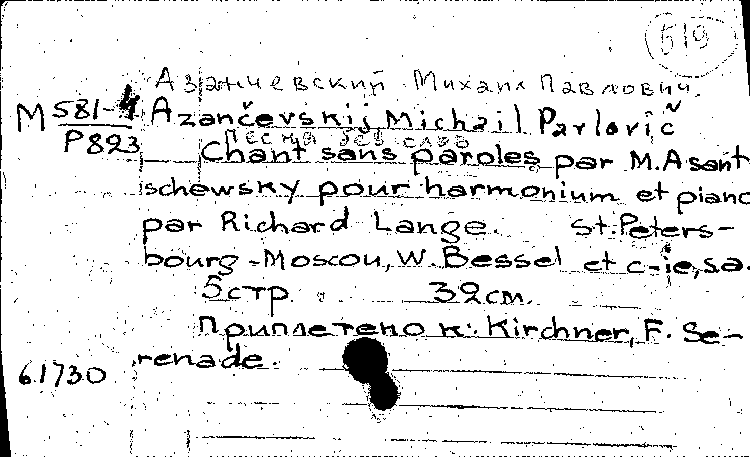 519
Азанчевский Михаил Павлович.
M 581-4 Azančevskij Michail Pavlovič
P823 Песня без слов
Chant sans paroles par M. Asant
schewsky pour harmonium et piano
par Richard Lange. St. Peters-
bourg-Moscou, W. Bessel et c-ie, s.a.
5 стр. 32 см.
Приплетено к: Kirchner, F. Se-
renade.
61730